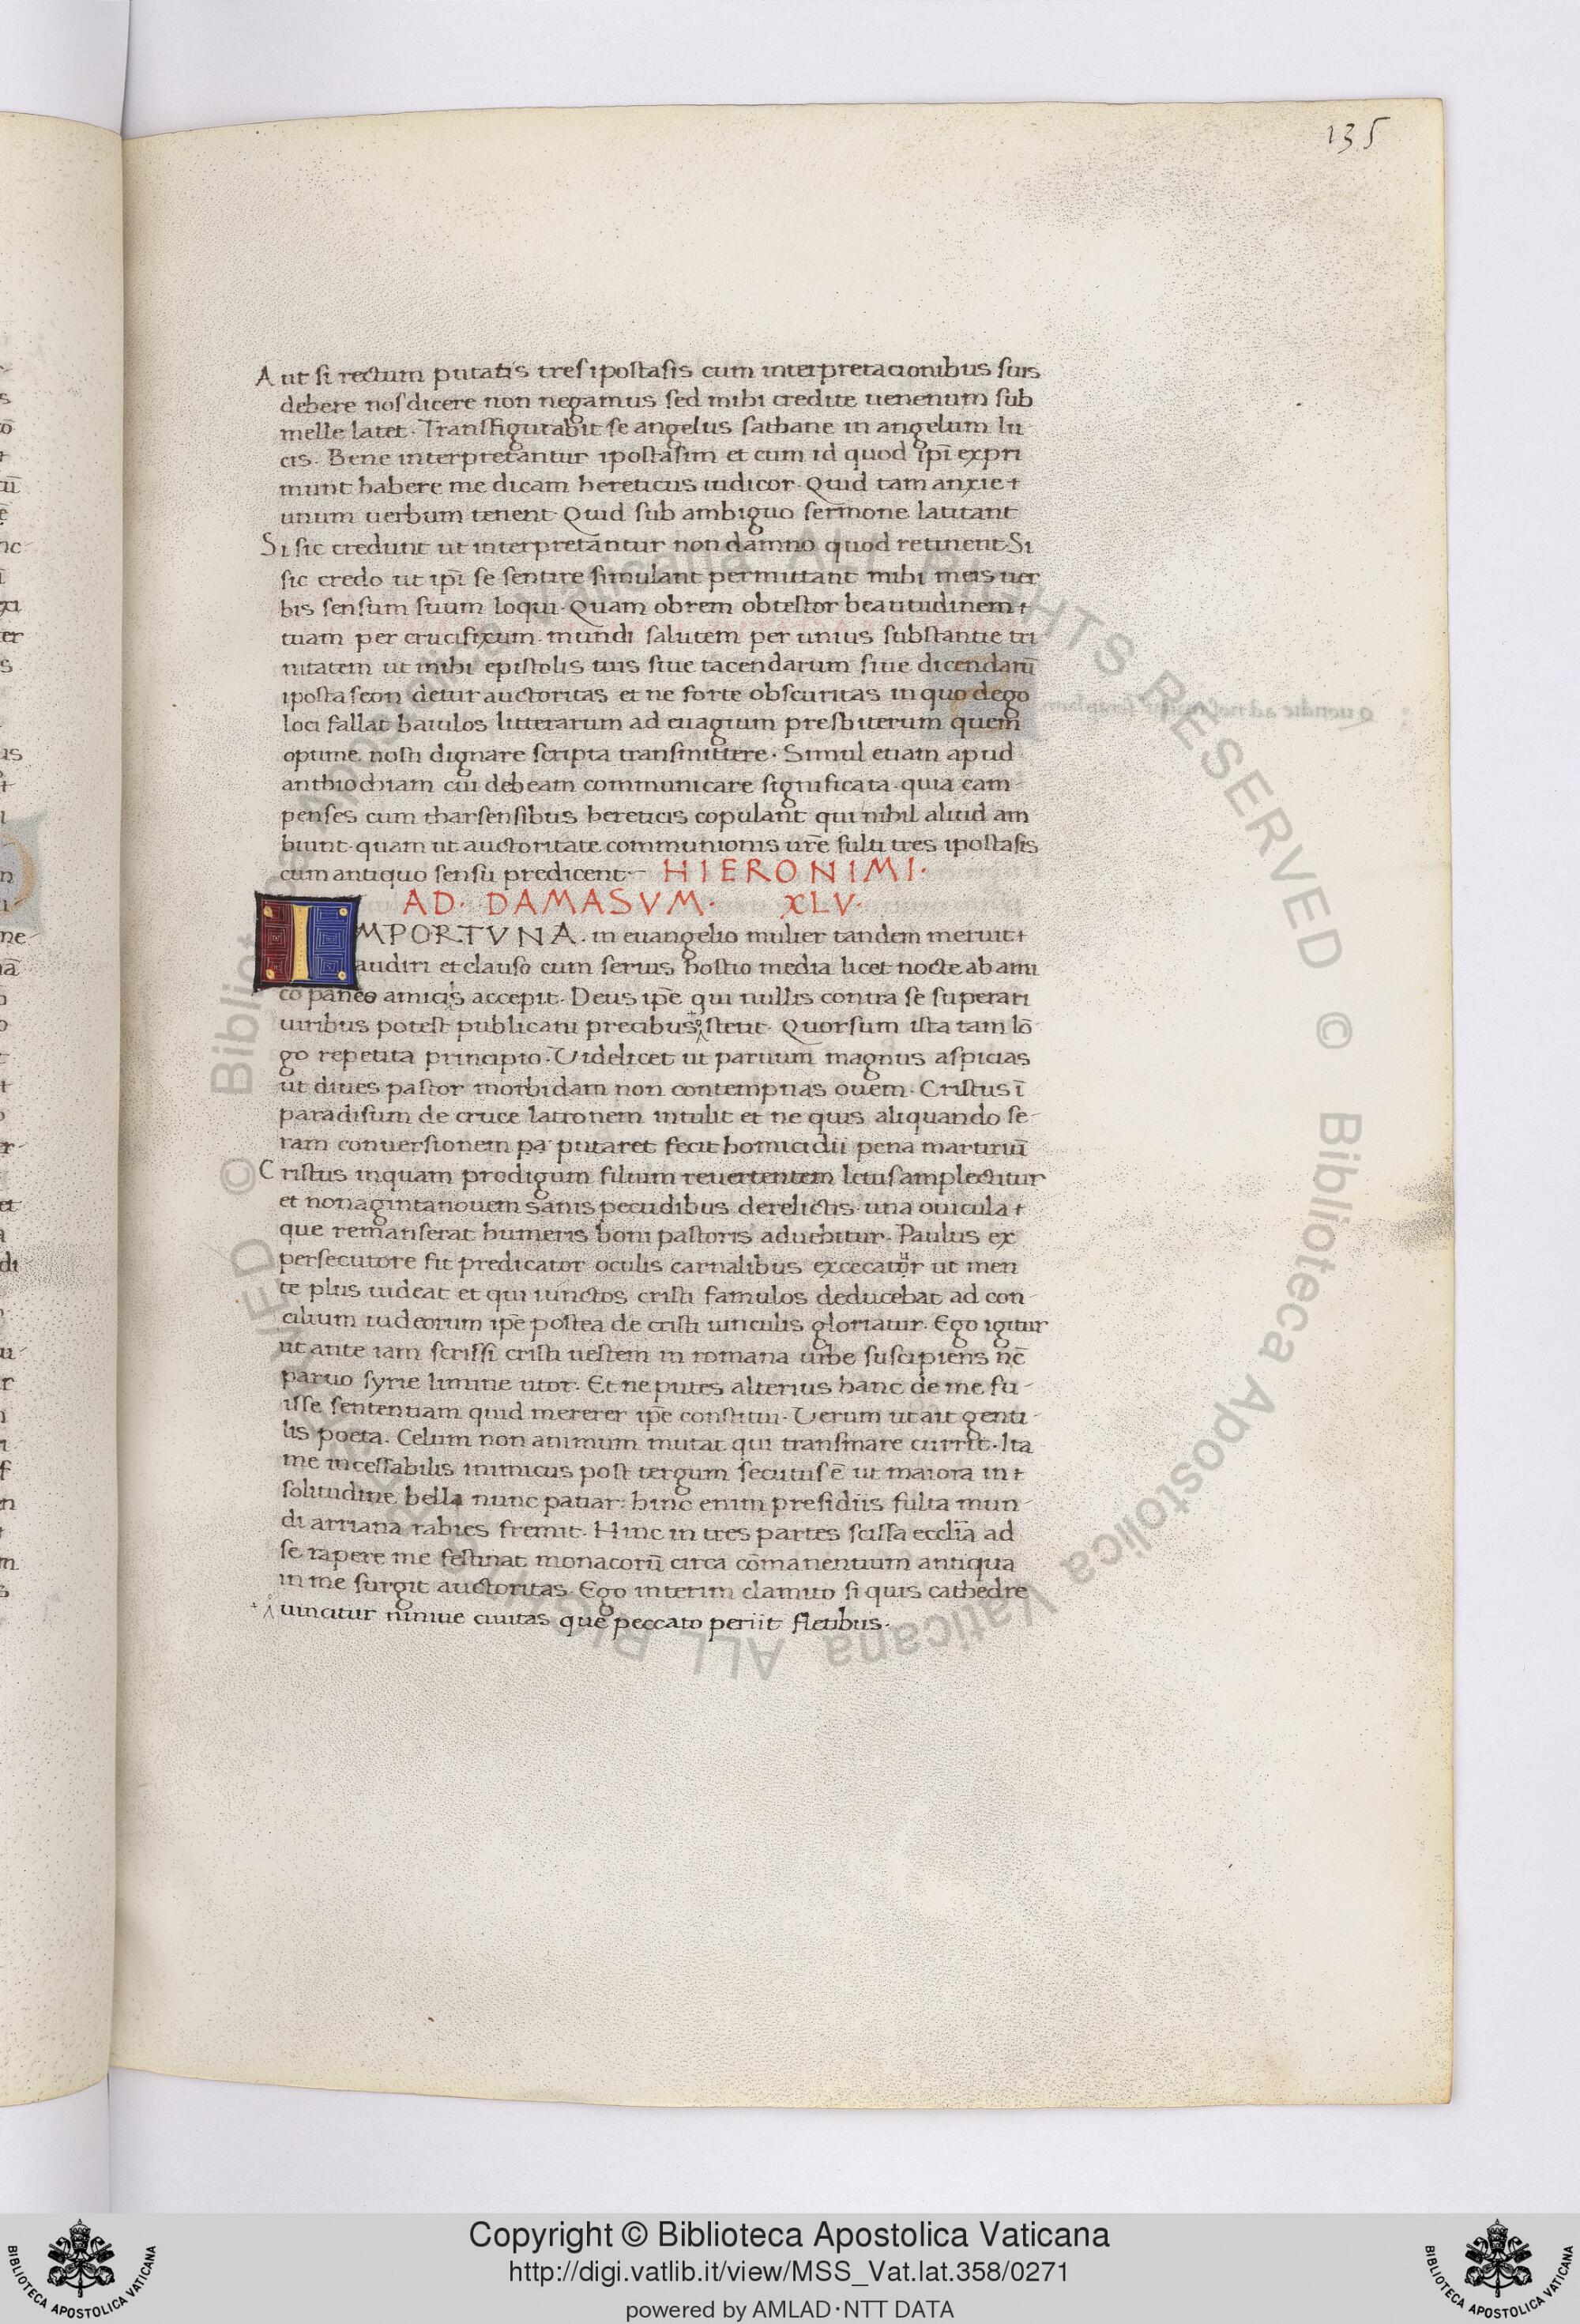 135
Aut si rectum putatis tres ipostasis cum interpretacionibus suis
debere nos dicere non negamus sed mihi credite uenenum sub
melle latet. Transfigurabit se angelus sathane in angelum lu
cis. Bene interpretantur ipostasim et cum id quod ip̄i expri
munt habere me dicam hereticus iudicor. Quid tam anxie
unum uerbum tenent Quid sub ambiguo sermone latitant
Si sic credunt ut interpretantur non damno quod retinent. Si
sic credo ut ip̄i se sentire simulant permittant mihi meis uer
bis sensum suum loqui. Quam obrem obtestor beatitudinem
tuam per crucifixum. mundi salutem per unius substantie tri
nitatem ut mihi epistolis tuis siue tacendarum siue dicendarū
ipostaseon detur auctoritas et ne forte obscuritas in quo dego
loci fallat baiulos litterarum ad euagium presbiterum quem
optime nosti dignare scripta transmittere. Simul etiam apud
anthiochiam cui debeam communicare significata. quia cam
penses cum tharsensibus hereticis copulant qui nihil aliud am
biunt. quam ut auctoritate communionis ur̄e fulti tres ipostasis
cum antiquo sensu predicent. HIERONIMI.
AD. DAMASVM. XLV.
IMPORTVNA. in euangelio mulier tandem meruit
audiri et clauso cum seruis hostio media licet nocte ab ami
co panes amicus accepit. Deus ip̄e qui nullis contra se superari
uiribus potest publicani precibus stetit. Quorsum ista tam lō
go repetita principio. Videlicet ut paruum magnus aspicias
ut diues pastor morbidam non contempnas ouem. Cristus ī
paradisum de cruce latronem intulit et ne quis aliquando se
ram conuersionem pa putaret fecit homicidii pena martiriū
Cristus inquam prodigum filium reuertentem letus amplectitur
et nonagintanouem sanis pecudibus derelictis una ouicula
que remanserat humeris boni pastoris aduehitur. Paulus ex
persecutore fit predicator oculis carnalibus excecatur ut men
te plus uideat et qui iunctos cristi famulos deducebat ad con
cilium iudeorum ip̄e postea de cristi uinculis gloriatur. Ego igitur
ut ante iam scrissi cristi uestem in romana urbe suscipiens nc̄
paruo syrie limine utor. Et ne putes alterius hanc de me fu
isse sententiam quid mererer ip̄e constitui. Verum ut ait genti
lis poeta. Celum non animum mutat qui transmare currit. Ita
me incessabilis inimicus post tergum secutus ē ut maiora in
solitudine bella nunc patiar: hinc enim presidiis fulta mun
di arriana rabies fremit. Hinc in tres partes scissa eccl̄ia ad
se rapere me festinat monacorū circa cōmanentium antiqua
in me surgit auctoritas. Ego interim clamito si quis cathedre
uincitur niniue ciuitas que peccato periit fletibus.
Copyright © Biblioteca Apostolica Vaticana
http://digi.vatlib.it/view/MSS_Vat.lat.358/0271
powered by AMLAD·NTT DATA